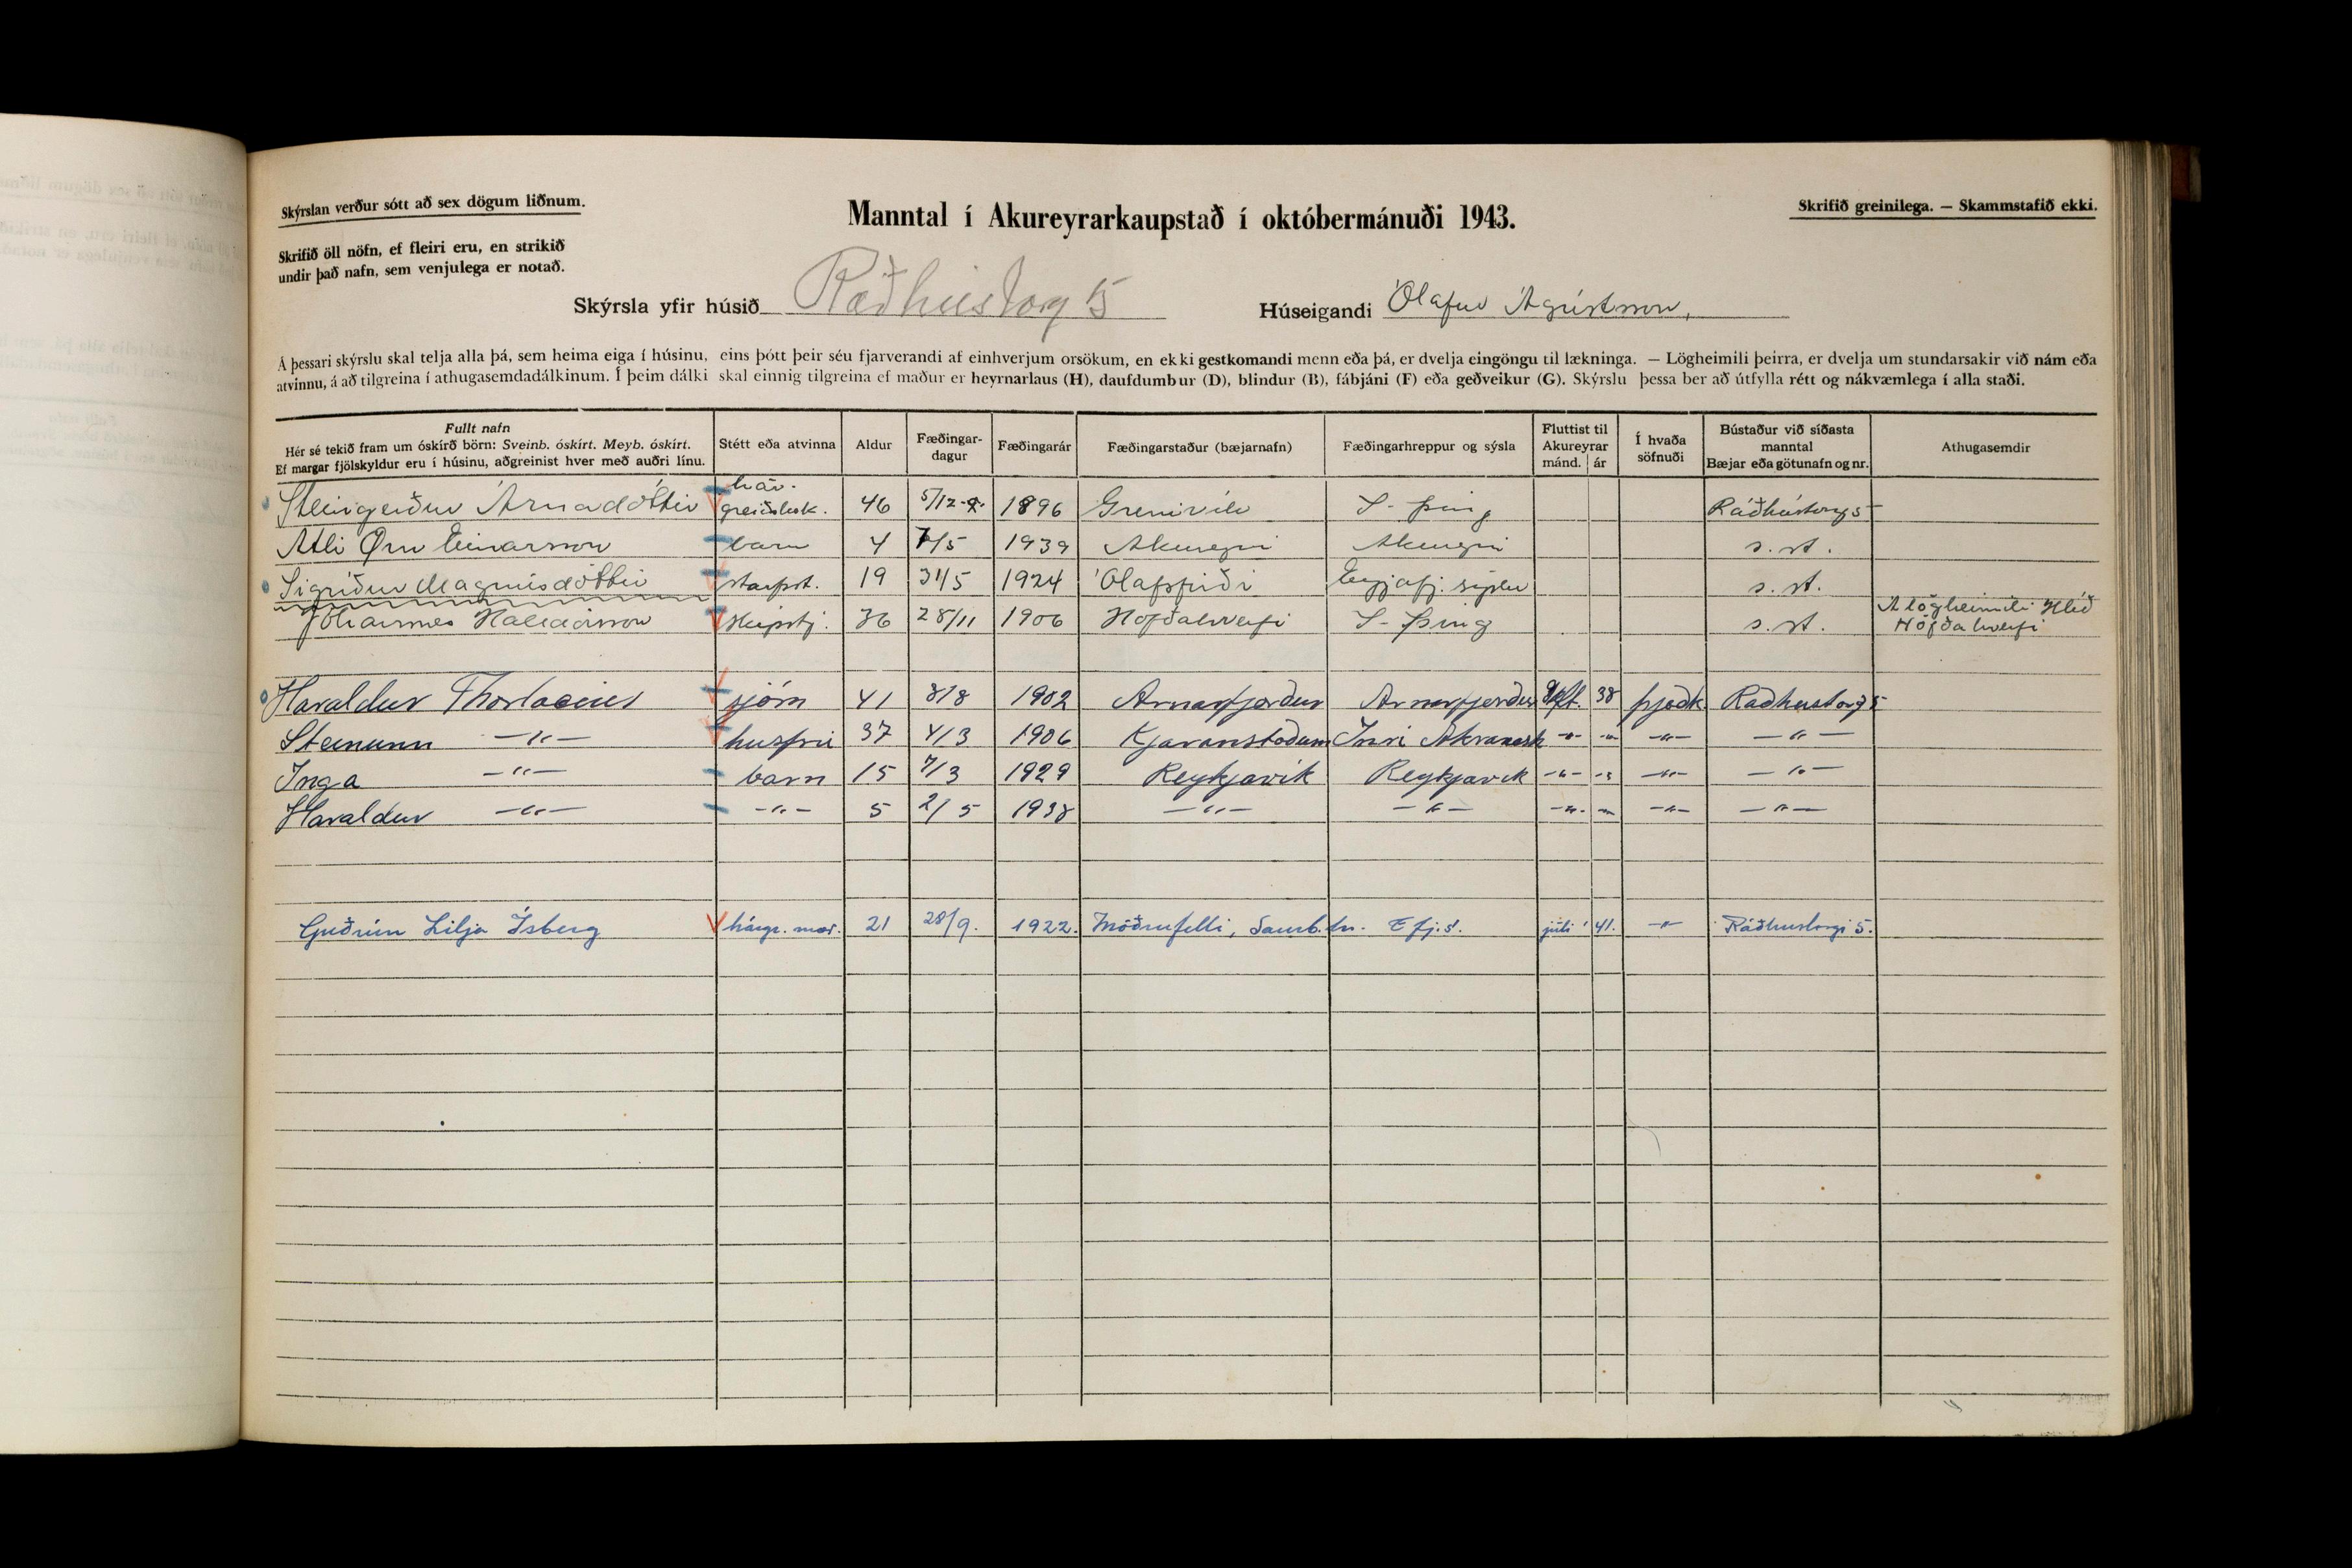 Skýrslan verður sótt að sex dögum liðnum.
Manntal í Akureyrarkaupstað í októbermánuði 1943.
Skrifið greinilega. — Skammstafið ekki.
Skrifið öll nöfn, ef fleiri eru, en strikið
undir það nafn, sem venjulega er notað.
Skýrsla yfir húsið Ráðhústorg 5 Húseigandi Ólafur Ágústsson,
Á þessari skýrslu skal telja alla þá, sem heima eiga í húsinu, eins þótt þeir séu fjarverandi af einhverjum orsökum, en ekki gestkomandi menn eða þá, er dvelja eingöngu til lækninga. — Lögheimili þeirra, er dvelja um stundarsakir við nám eða
atvinnu, á að tilgreina í athugasemdadálkinum. Í þeim dálki skal einnig tilgreina ef maður er heyrnarlaus (H), daufdumbur (D), blindur (B), fábjáni (F) eða geðveikur (G). Skýrslu þessa ber að útfylla rétt og nákvæmlega í alla staði.
Fullt nafn
Hér sé tekið fram um óskírð börn: Sveinb. óskírt. Meyb. óskírt.
Ef margar fjölskyldur eru í húsinu, aðgreinist hver með auðri línu.
Stétt eða atvinna
Aldur
Fæðingar-
dagur
Fæðingarár
Fæðingarstaður (bæjarnafn)
Fæðingarhreppur og sýsla
Fluttist til
Akureyrar
mánd. ár
Í hvaða
söfnuði
Bústaður við síðasta
manntal
Bæjar eða götunafn og nr.
Athugasemdir
hár-
Steingerður Árnadóttir greiðslук. 46 5/12 1896 Grenivík S-Þing Ráðhústorg 5
Atli Örn Einarsson barn 4 7/5 1939 Akureyri Akureyri s. st.
Sigríður Magnúsdóttir starfst. 19 31/5 1924 Ólafsfirði Eyjafj. sýslu s. st.
Jóhannes Halldórsson skipstj. 36 28/11 1906 Höfðahverfi S-Þing s. st. Á lögheimili Hlíð
Höfðahverfi
Haraldur Thorlacius sjóm 41 8/8 1902 Arnarfjörður Arnarfjörður 38 þjóðk Ráðhustorg 5
Steinunn —"— husfrú 37 4/3 1906 Kjaranstöðum Innri Akranesh -"- -"- -"- —"—
Inga —"— barn 15 7/3 1929 Reykjavík Reykjavík -"- -"- -"- —"—
Haraldur —"— -"- 5 2/5 1938 —"— —"— -"- -"- -"- —"—
Guðrún Lilja Ísberg hárgr. mær. 21 28/9. 1922. Möðrufelli, Saurb.hr. Efj.s. júlí 41. -"- Ráðhustorgi 5.